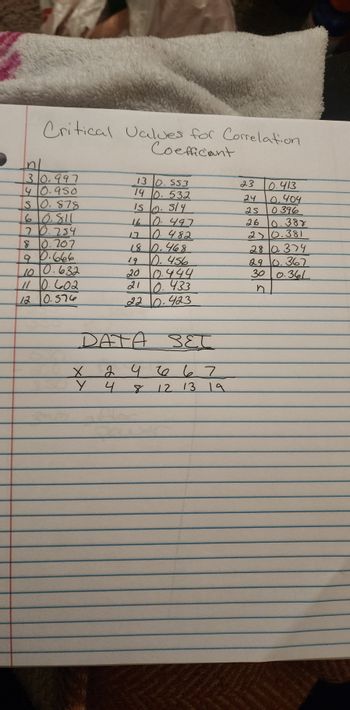 Critical Values for Correlation
Coefficient
n
3 0.997
4 0.950
5 0.878
6 0.811
7 0.754
8 0.707
9 0.666
10 0.632
11 0.602
12 0.576
13 0.553
14 0.532
15 0.514
16 0.497
17 0.482
18 0.468
19 0.456
20 0.444
21 0.433
22 0.423
23 0.413
24 0.404
25 0.396
26 0.388
27 0.381
28 0.374
29 0.367
30 0.361
n
DATA SET
X 2 4 6 6 7
Y 4 8 12 13 19